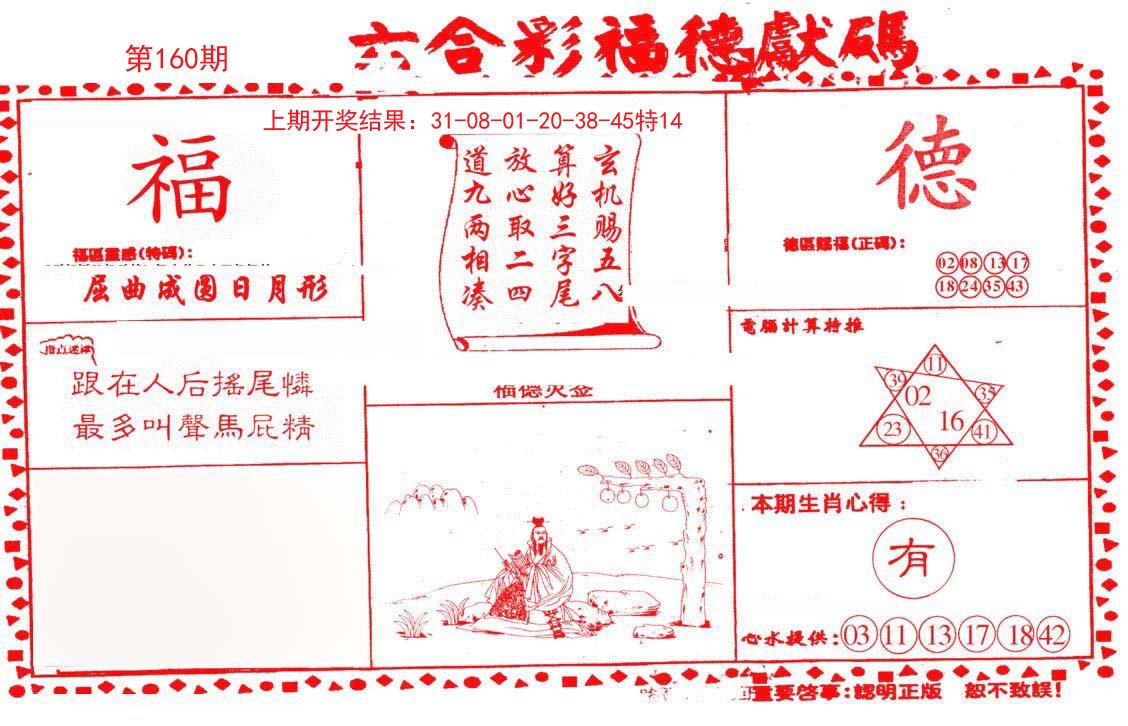 第160期
六合彩福德獻碼
上期开奖结果：31-08-01-20-38-45特14
福
福區靈感(特碼)：
屈曲成圆日月形
跟在人后搖尾憐
最多叫聲馬屁精
玄机赐五八
算好三字尾
放心取二四
道九两相凑
福德灵签
德
德區賜福(正碼)：
02 08 13 17
18 24 35 43
電腦計算特推
11
39 02 35
16
23 41
36
本期生肖心得：
有
心水提供：03 11 13 17 18 42
重要啓事：認明正版 恕不致誤！